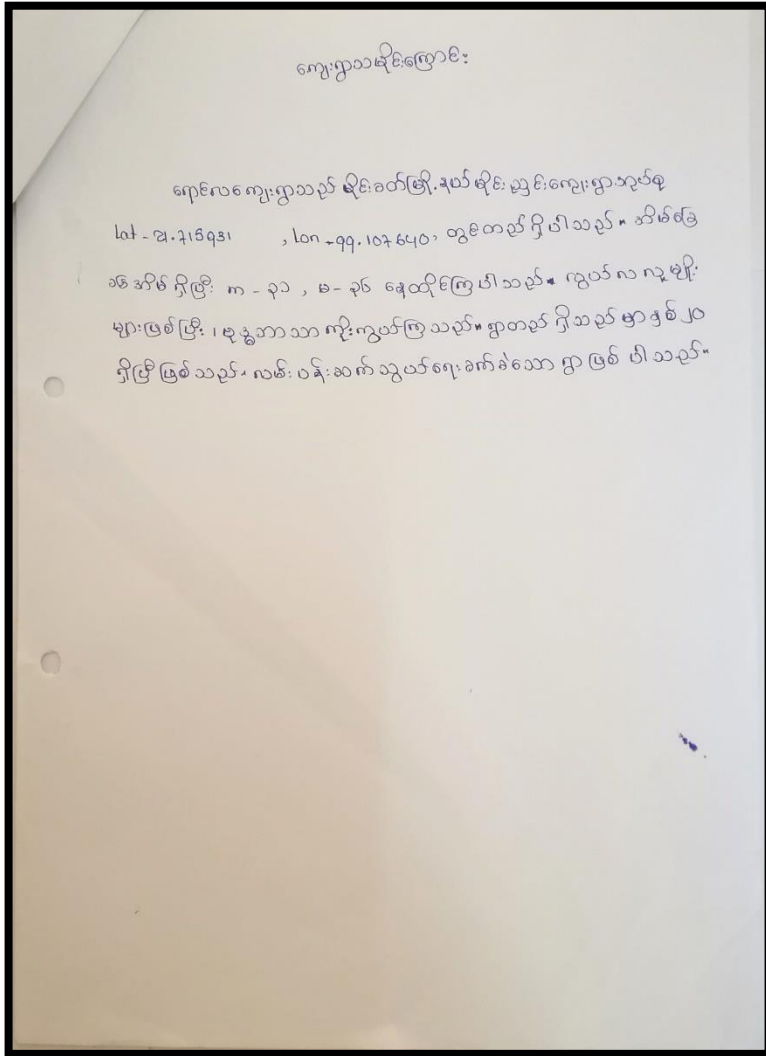 ကျေးရွာသမိုင်းကြောင်း
ရောင်လကျေးရွာသည် မိုင်းခတ်မြို့နယ် မိုင်းညှင်းကျေးရွာအုပ်စု
Lat - 21.715931 , Lon - 99.107640, တွင်တည်ရှိပါသည်။ အိမ်ခြေ
အိမ်ရှိပြီး က - ၃၁ , မ - ၃၆ နေထိုင်ကြပါသည်။ လွယ်လလူမျိုး
များဖြစ်ပြီး၊ ဗုဒ္ဓဘာသာကိုးကွယ်ကြသည်။ ရွာတည်ရှိသည်မှာနှစ် ၂၀
ရှိပြီဖြစ်သည်။ လမ်းပန်းဆက်သွယ်ရေးခက်ခဲသော ရွာဖြစ်ပါသည်။